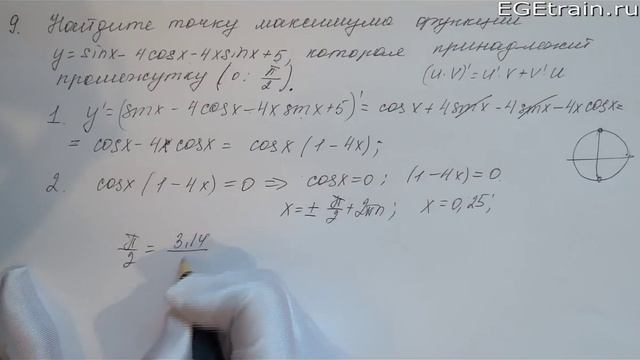 EGEtrain.ru
9. Найдите точку максимума функции
y = sinx - 4cosx - 4xsinx + 5, которая принадлежит
промежутку (0; π/2). (u·v)' = u'v + v'u
1. y' = (sinx - 4cosx - 4xsinx + 5)' = cosx + 4sinx - 4sinx - 4xcosx =
= cosx - 4xcosx = cosx(1 - 4x);
2. cosx(1 - 4x) = 0 ⇒ cosx = 0; (1 - 4x) = 0
x = ± π/2 + 2πn; x = 0,25;
π/2 = 3,14